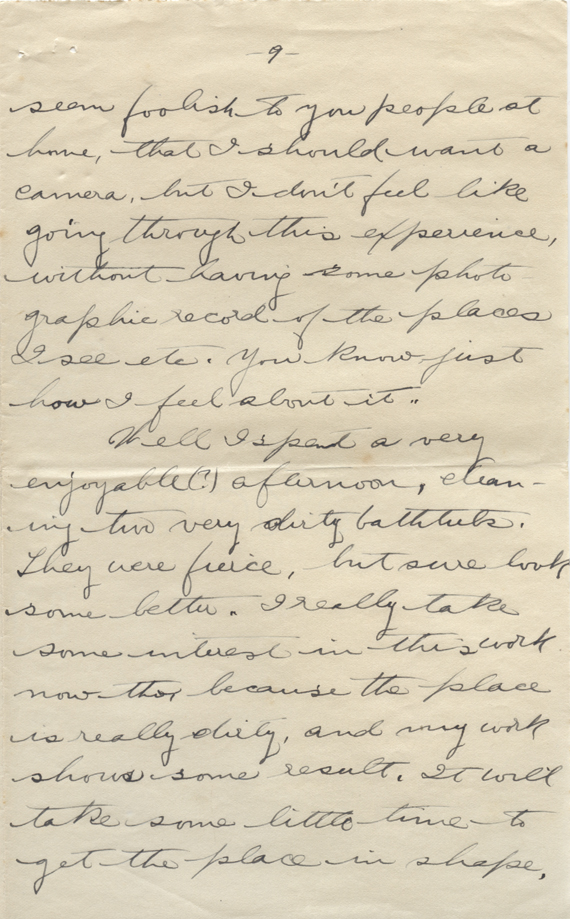 -9-
seem foolish to you people at
home, that I should want a
camera, but I don't feel like
going through this experience,
without having some photo
graphic record of the places
I see etc. You know just
how I feel about it..
Well I spent a very
enjoyable(?) afternoon, clean-
ing two very dirty bathtubs.
They were fierce, but sure look
some better. I really take
some interest in this work
now tho, because the place
is really dirty, and my work
shows some result. It will
take some little time to
get the place in shape,